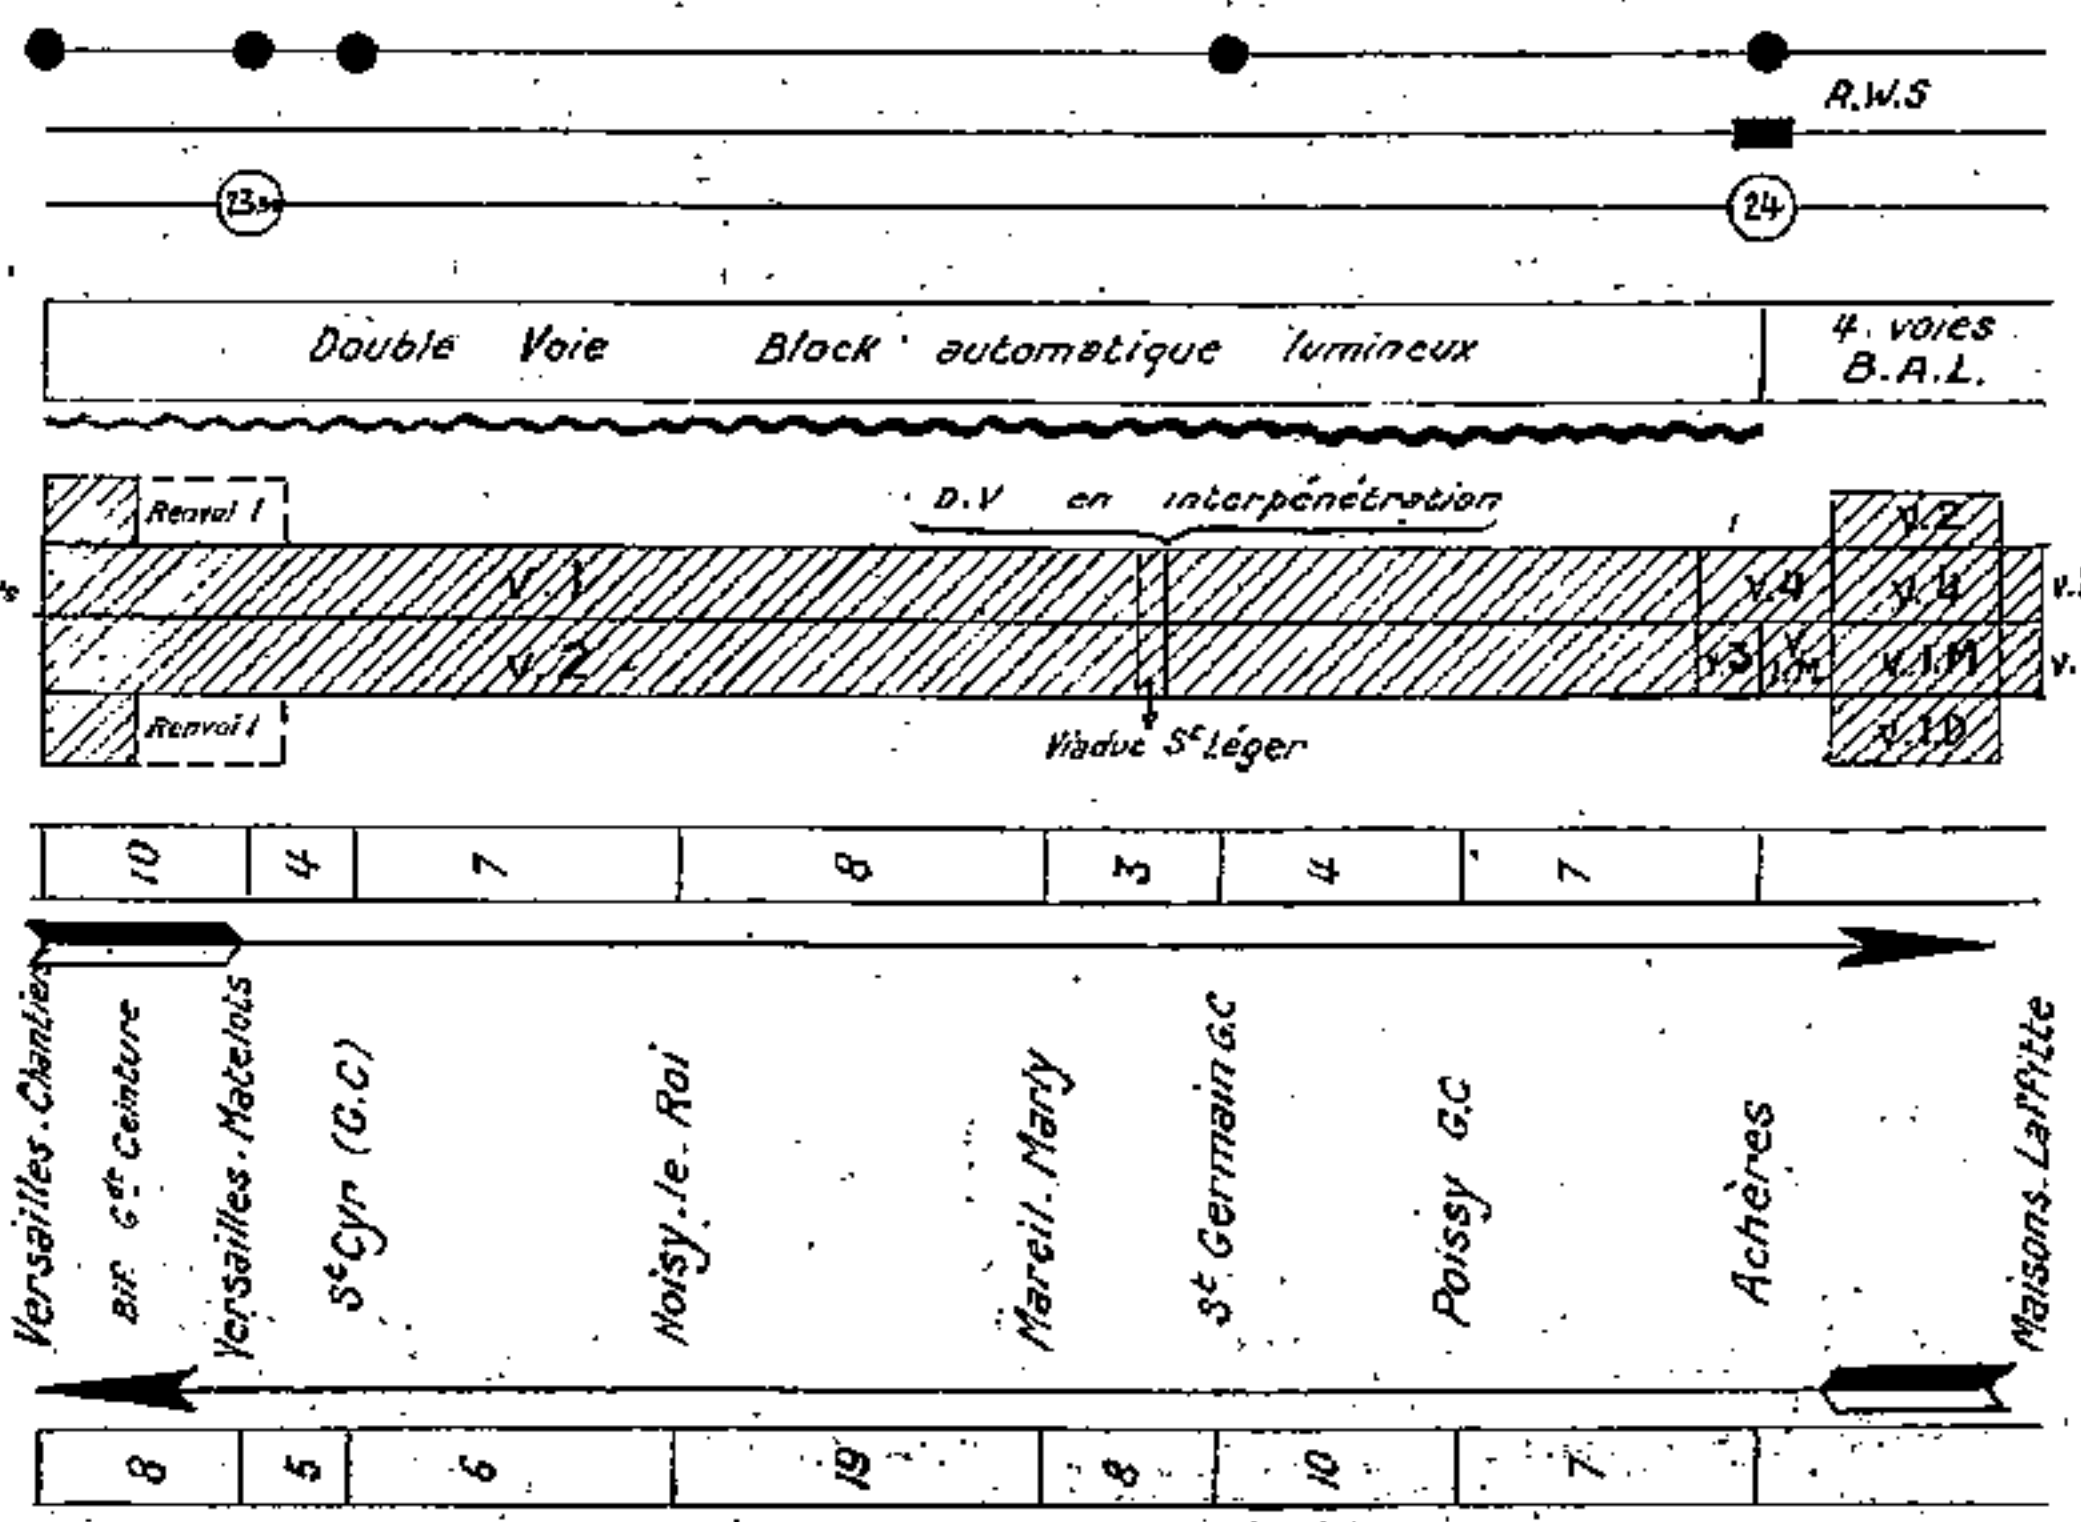 R.W.S
24
Double Voie Block automatique lumineux
4. voies
B.A.L.
Renvoi 1
D.V en interpénétration
v.2
v.1
v.4
v.4
v.2
v.3
v.1.M
v.1.M
Renvoi 1
Viaduc St Léger
v.1D
10
4
7
8
3
4
7
Versailles.Chantiers
Bif. Gde Ceinture
Versailles.Matelots
St Cyr (G.C)
Noisy-le-Roi
Mareil-Marly
St Germain G.C
Poissy G.C
Achères
Maisons-Laffitte
8
5
6
19
8
10
7